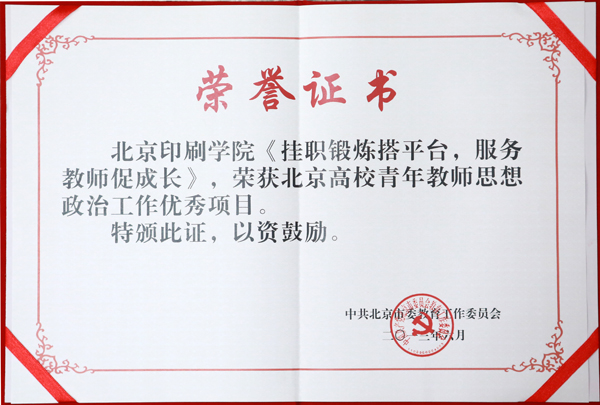 荣誉证书
北京印刷学院《挂职锻炼搭平台，服务
教师促成长》，荣获北京高校青年教师思想
政治工作优秀项目。
特颁此证，以资鼓励。
中共北京市委教育工作委员会
二〇一三年六月